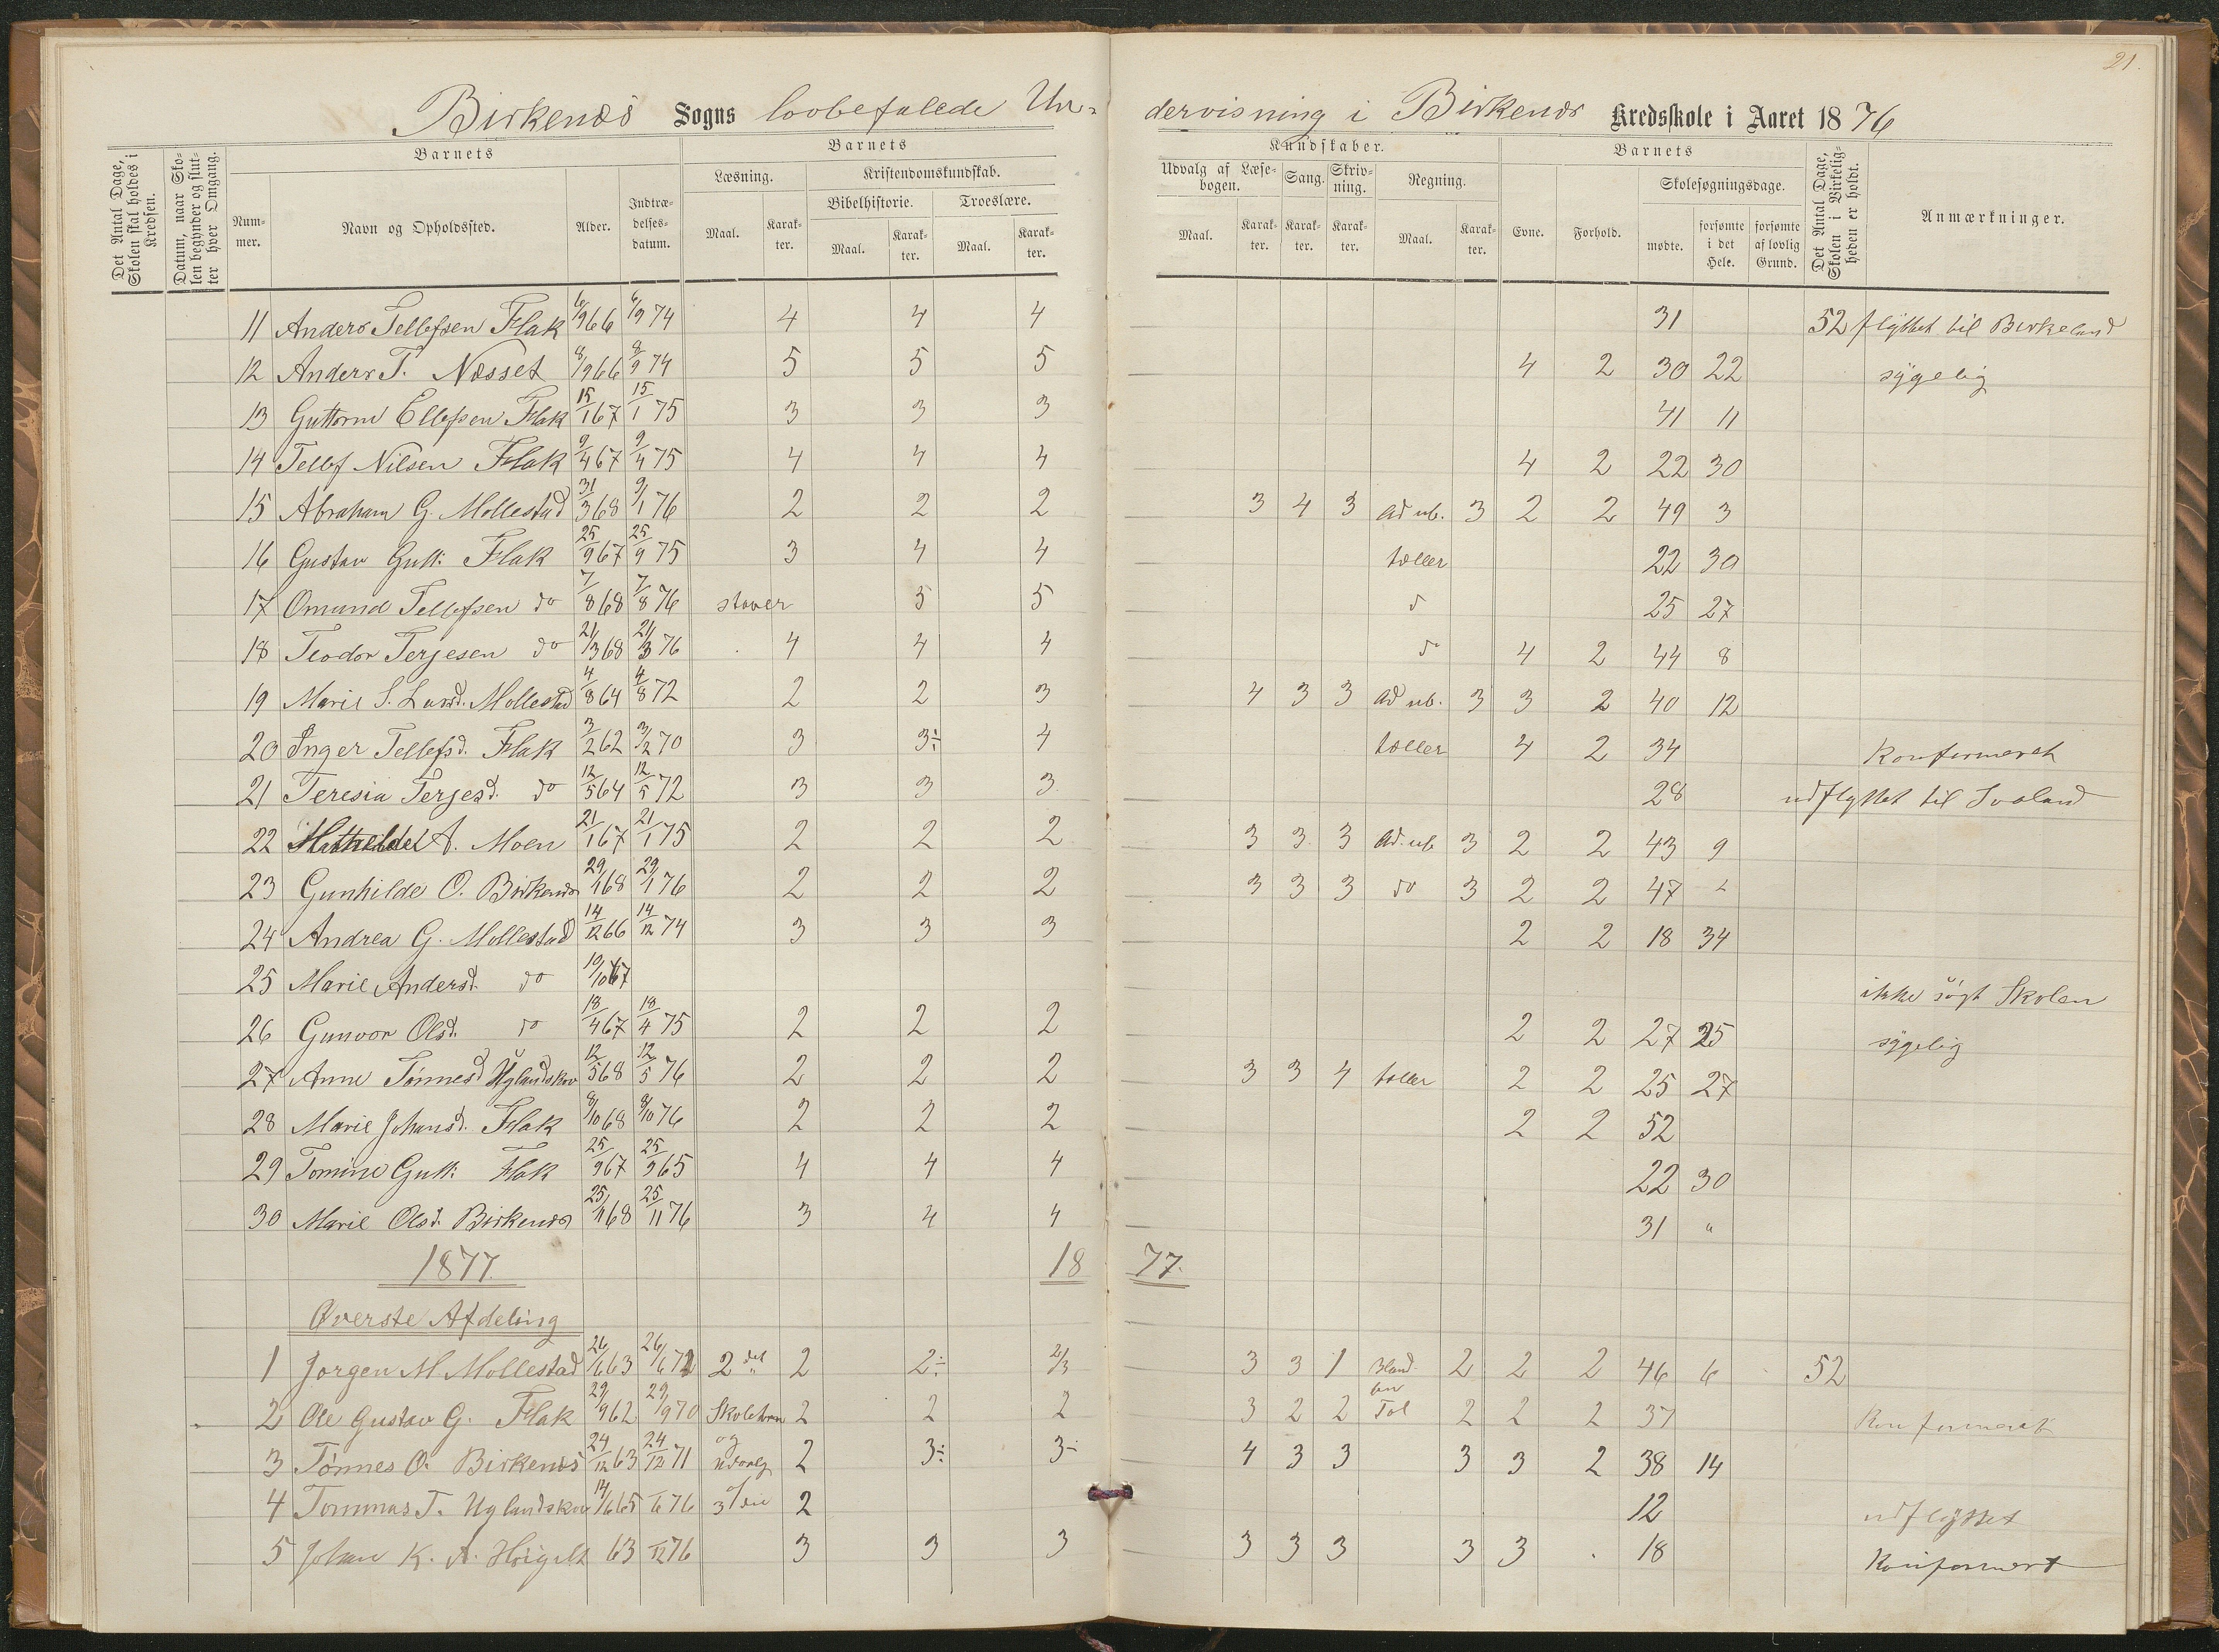 21.
Birkenæs Sogns lovbefalede Un-dervisning i Birkenæs Kredsskole i Aaret 1876
Det Antal Dage, Skolen skal holdes i Kredsen.
Datum, naar Skolen begynder og slutter hver Omgang.
Barnets
Nummer. Navn og Opholdssted. Alder. Indtrædelsesdatum.
Barnets Kundskaber.
Læsning. Maal. Karakter.
Kristendomskundskab.
Bibelhistorie. Maal. Karakter.
Troeslære. Maal. Karakter.
Udvalg af Læsebogen. Maal. Karakter.
Sang. Karakter.
Skrivning. Karakter.
Regning. Maal. Karakter.
Barnets
Evne. Forhold.
Skolesøgningsdage.
mødte. forsømte i det Hele. forsømte af lovlig Grund.
Det Antal Dage, Skolen i Virkeligheden er holdt.
Anmærkninger.
11 Anders Tellefsen Flak 6/9 66 6/9 74 4 4 4 31 52 flyttet til Birkeland
12 Anders T. Næsset 8/9 66 8/9 74 5 5 5 4 2 30 22 sygelig
13 Guttorm Ellefsen Flak 15/1 67 15/1 75 3 3 3 41 11
14 Tellef Nilsen Flak 9/4 67 9/4 75 4 4 4 4 2 22 30
15 Abraham G. Mollestad 31/3 68 9/1 76 2 2 2 3 4 3 ad ub. 3 2 2 49 3
16 Gustav Gutt: Flak 25/9 67 25/9 75 3 4 4 tæller 22 30
17 Omund Tellefsen do 7/8 68 7/8 76 staver 5 5 do 25 27
18 Teodor Terjesen do 21/3 68 21/3 76 4 4 4 do 4 2 44 8
19 Marie S. Mollestad 4/8 64 4/8 72 2 2 3 4 3 3 ad ub. 3 3 2 40 12
20 Inger Tellefsd. Flak 3/2 62 3/2 70 3 3÷ 4 tæller 4 2 34 Konfirmeret
21 Teresia Terjesd. do 12/5 64 12/5 72 3 3 3 28 udflyttet til Ivoland
22 Mathilde A. Moen 21/1 67 21/1 75 2 2 2 3 3 3 ad. ub 3 2 2 43 9
23 Gunhilde O. Birkenæs 29/1 68 29/1 76 2 2 2 3 3 3 do 3 2 2 47
24 Andrea G. Mollestad 14/12 66 14/12 74 3 3 3 2 2 18 34
25 Marie Andersd. do 10/10 67 ikke søgt Skolen
26 Gunvor Olsd. do 18/4 67 18/4 75 2 2 2 2 2 27 25 sygelig
27 Anne Tønnesd Uglandskov 12/5 68 12/5 76 2 2 2 3 3 4 tæller 2 2 25 27
28 Marie Johansd. Flak 8/10 68 8/10 76 2 2 2 2 2 52
29 Tomine Gutt: Flak 25/9 67 25/9 65 4 4 4 22 30
30 Marie Olsd. Birkenæs 25/11 68 25/11 76 3 4 4 31 "
1877. 1877.
Øverste Afdeling
1 Jørgen M. Mollestad 26/6 63 26/6 71 2 det 2 2÷ 2/3 3 3 1 Bland. 2 2 2 46 6 52
2 Ole Gustav G. Flak 29/9 62 29/9 70 Skoletrin 2 2 2 3 2 2 Tal 2 2 2 37 Konfirmeret
3 Tønnes O. Birkenæs 24/12 63 24/12 71 og udvalg 2 3÷ 3÷ 4 3 3 3 3 2 38 14
4 Tommas T. Uglandskov 14/6 65 1/6 76 3die 2 12 udflyttet
5 Johan K. A. 63 1/12 76 3 3 3 3 3 3 3 3 18 Konfirmert